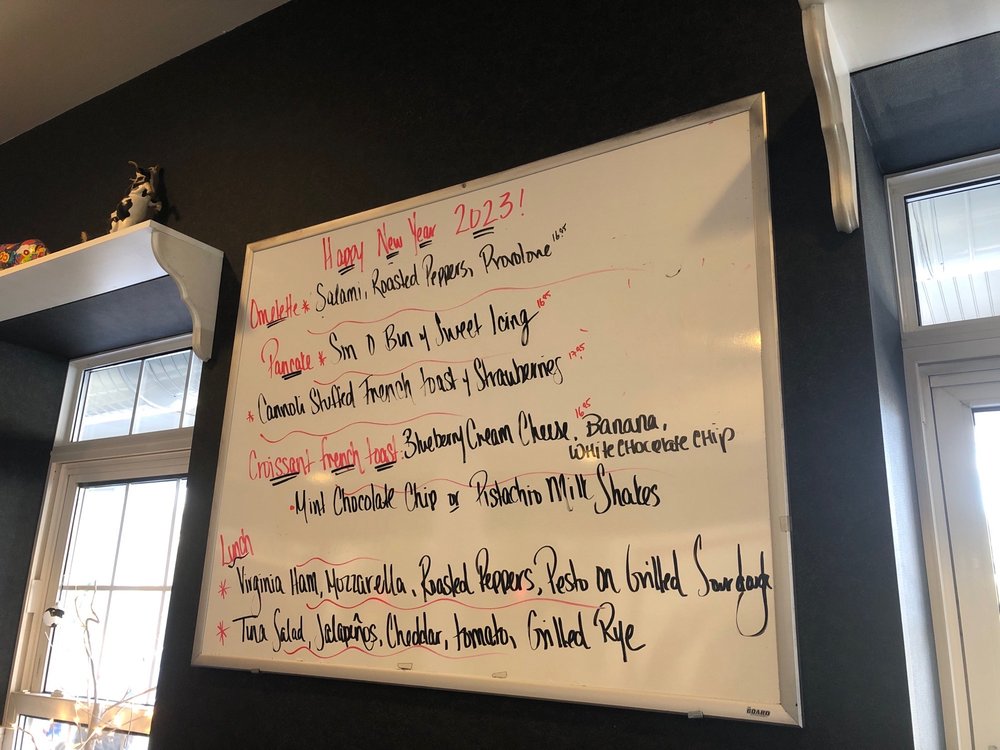 Happy New Year 2023!
Omelette * Salami, Roasted Peppers, Provolone 16.95
Pancake * Sin O Bun & Sweet Icing 16.95
* Cannoli Stuffed French toast & Strawberries 17.95
Croissant french toast: Blueberry Cream Cheese, 16.95 Banana,
WHITE CHOCOLATE CHIP
• Mint Chocolate Chip or Pistachio Milk Shakes
Lunch
* Virginia Ham, Mozzarella, Roasted Peppers, Pesto on Grilled Sourdough
* Tuna Salad, Jalapeños, Cheddar, tomato, Grilled Rye
THE BOARD